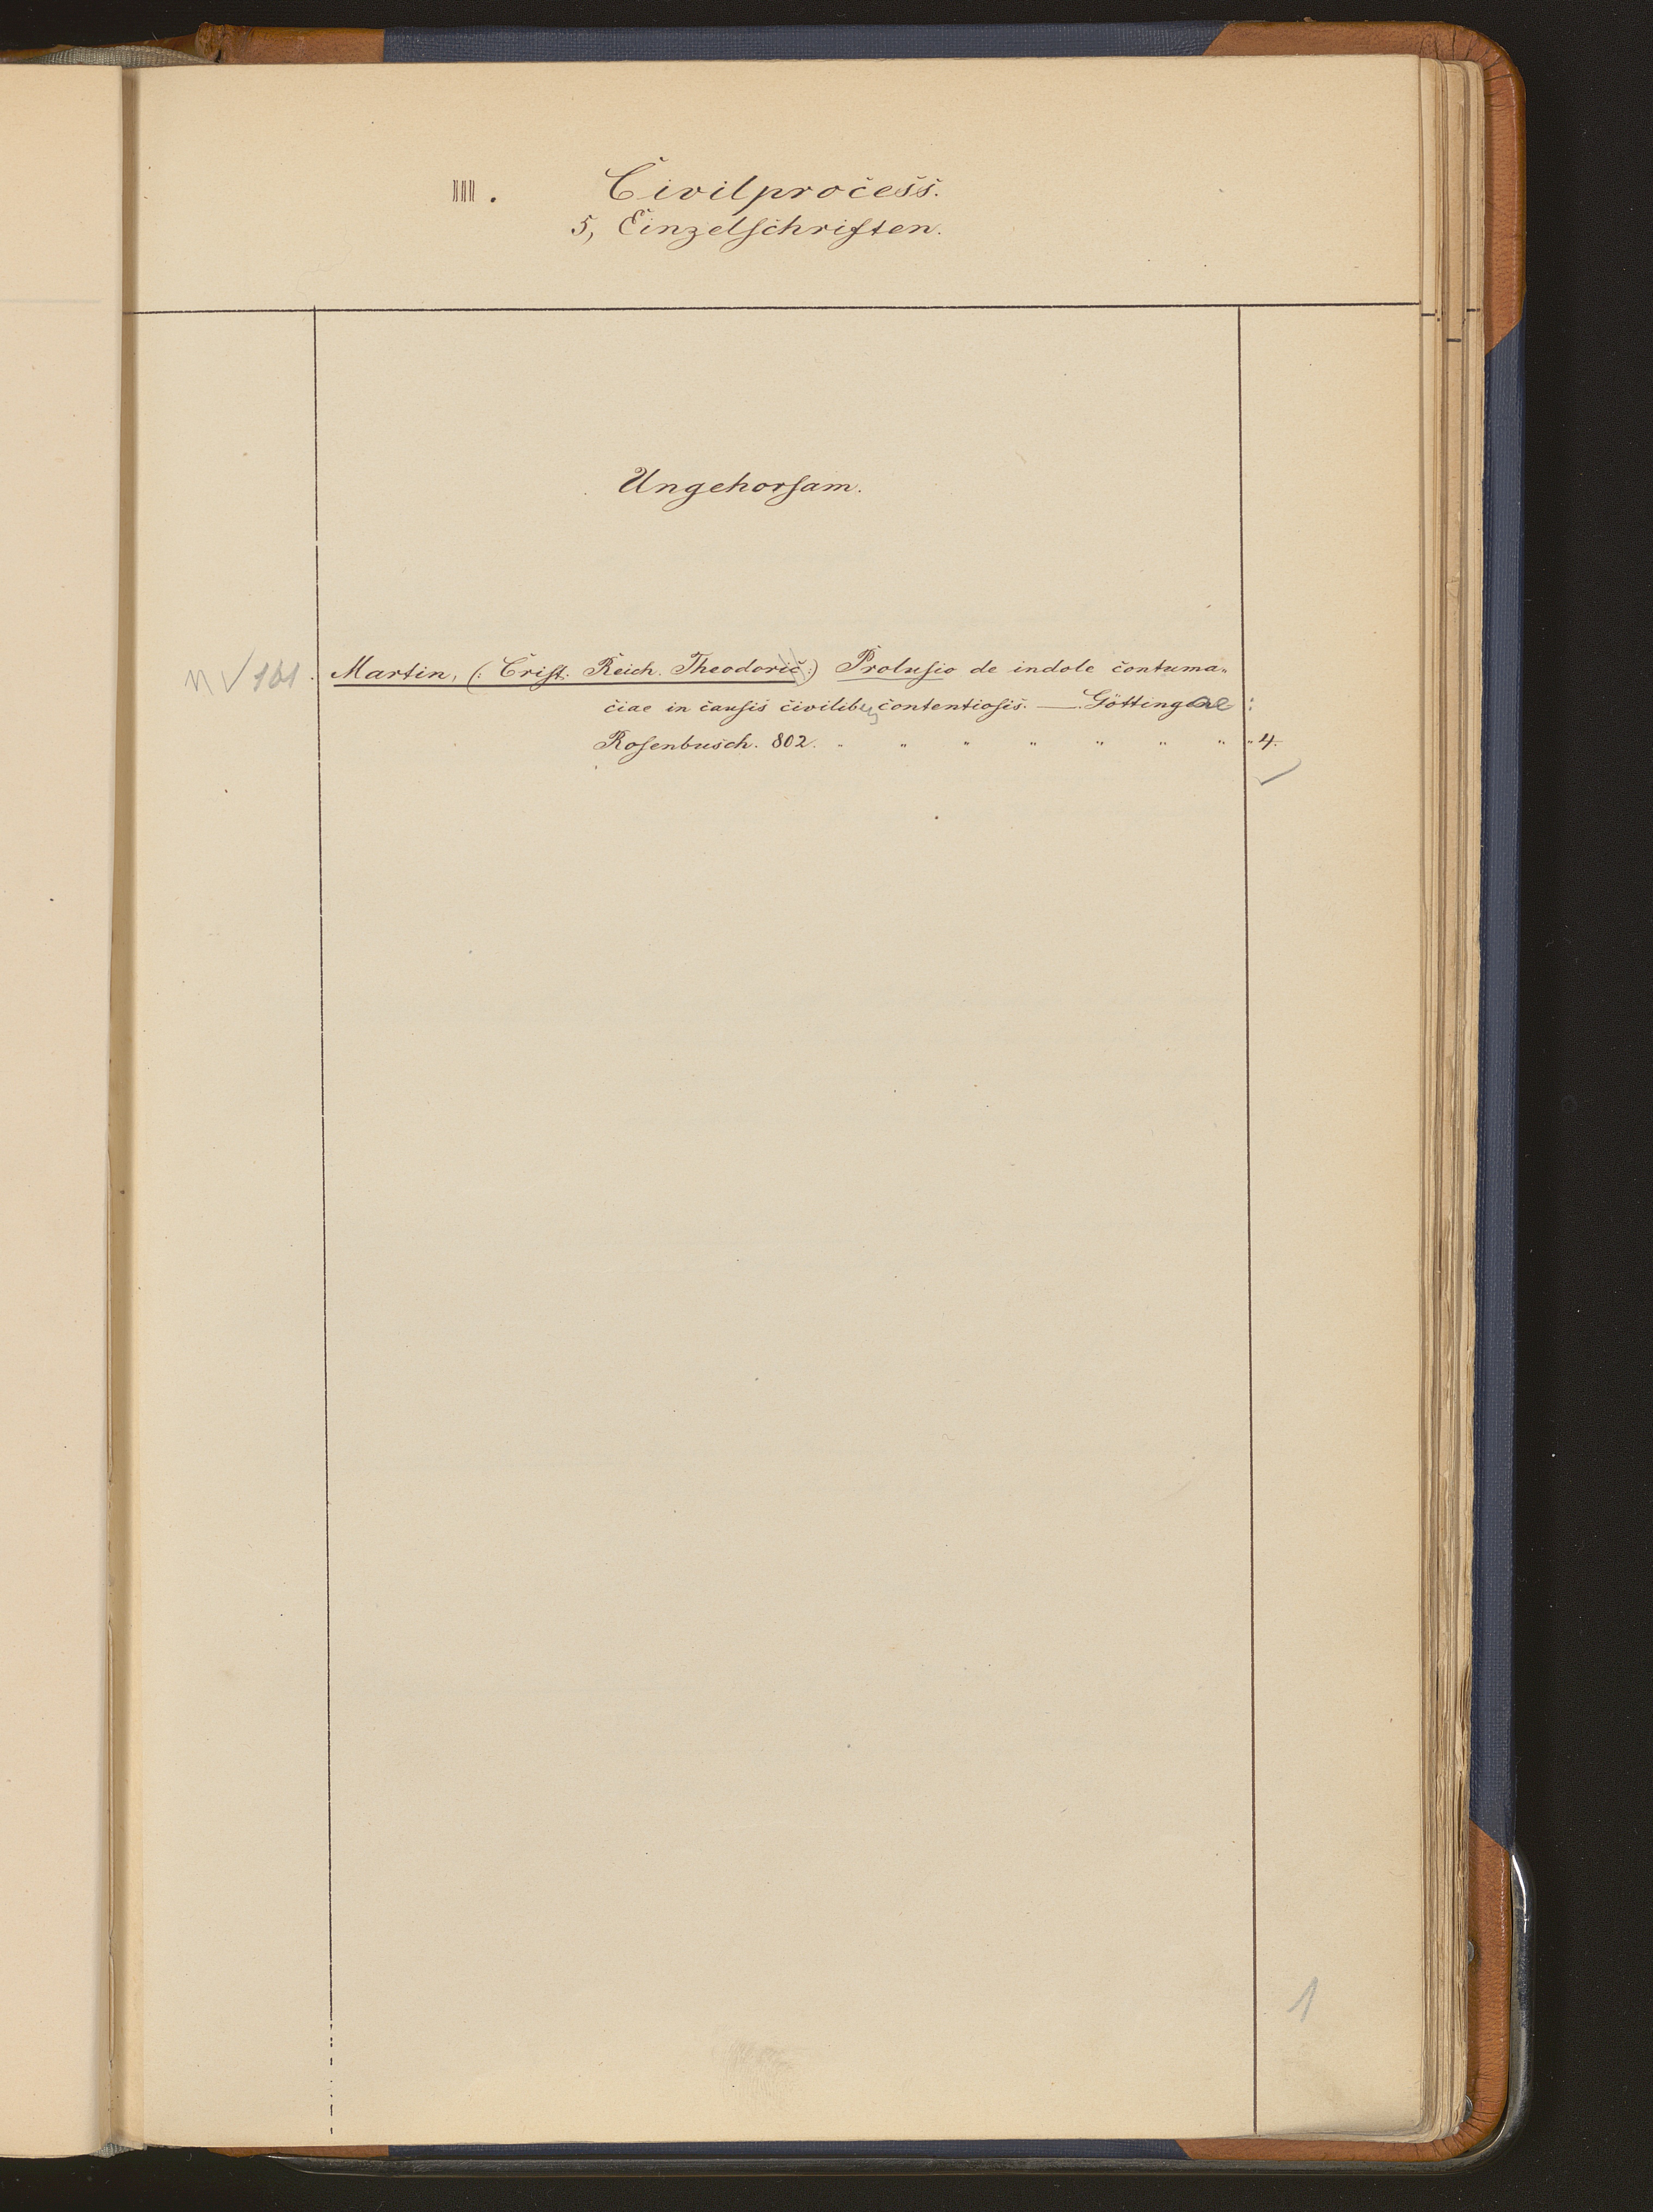 III. Civilprocess.
5, Einzelschriften.
Ungehorsam.
n √ 101. Martin, (: Crist. Reich. Theodoric :) Prolusio de indole contuma„
ciae in causis civilibus contentiosis. — Göttingae :
Rosenbusch. 802. „ „ „ „ „ „ „ „ 4.
1